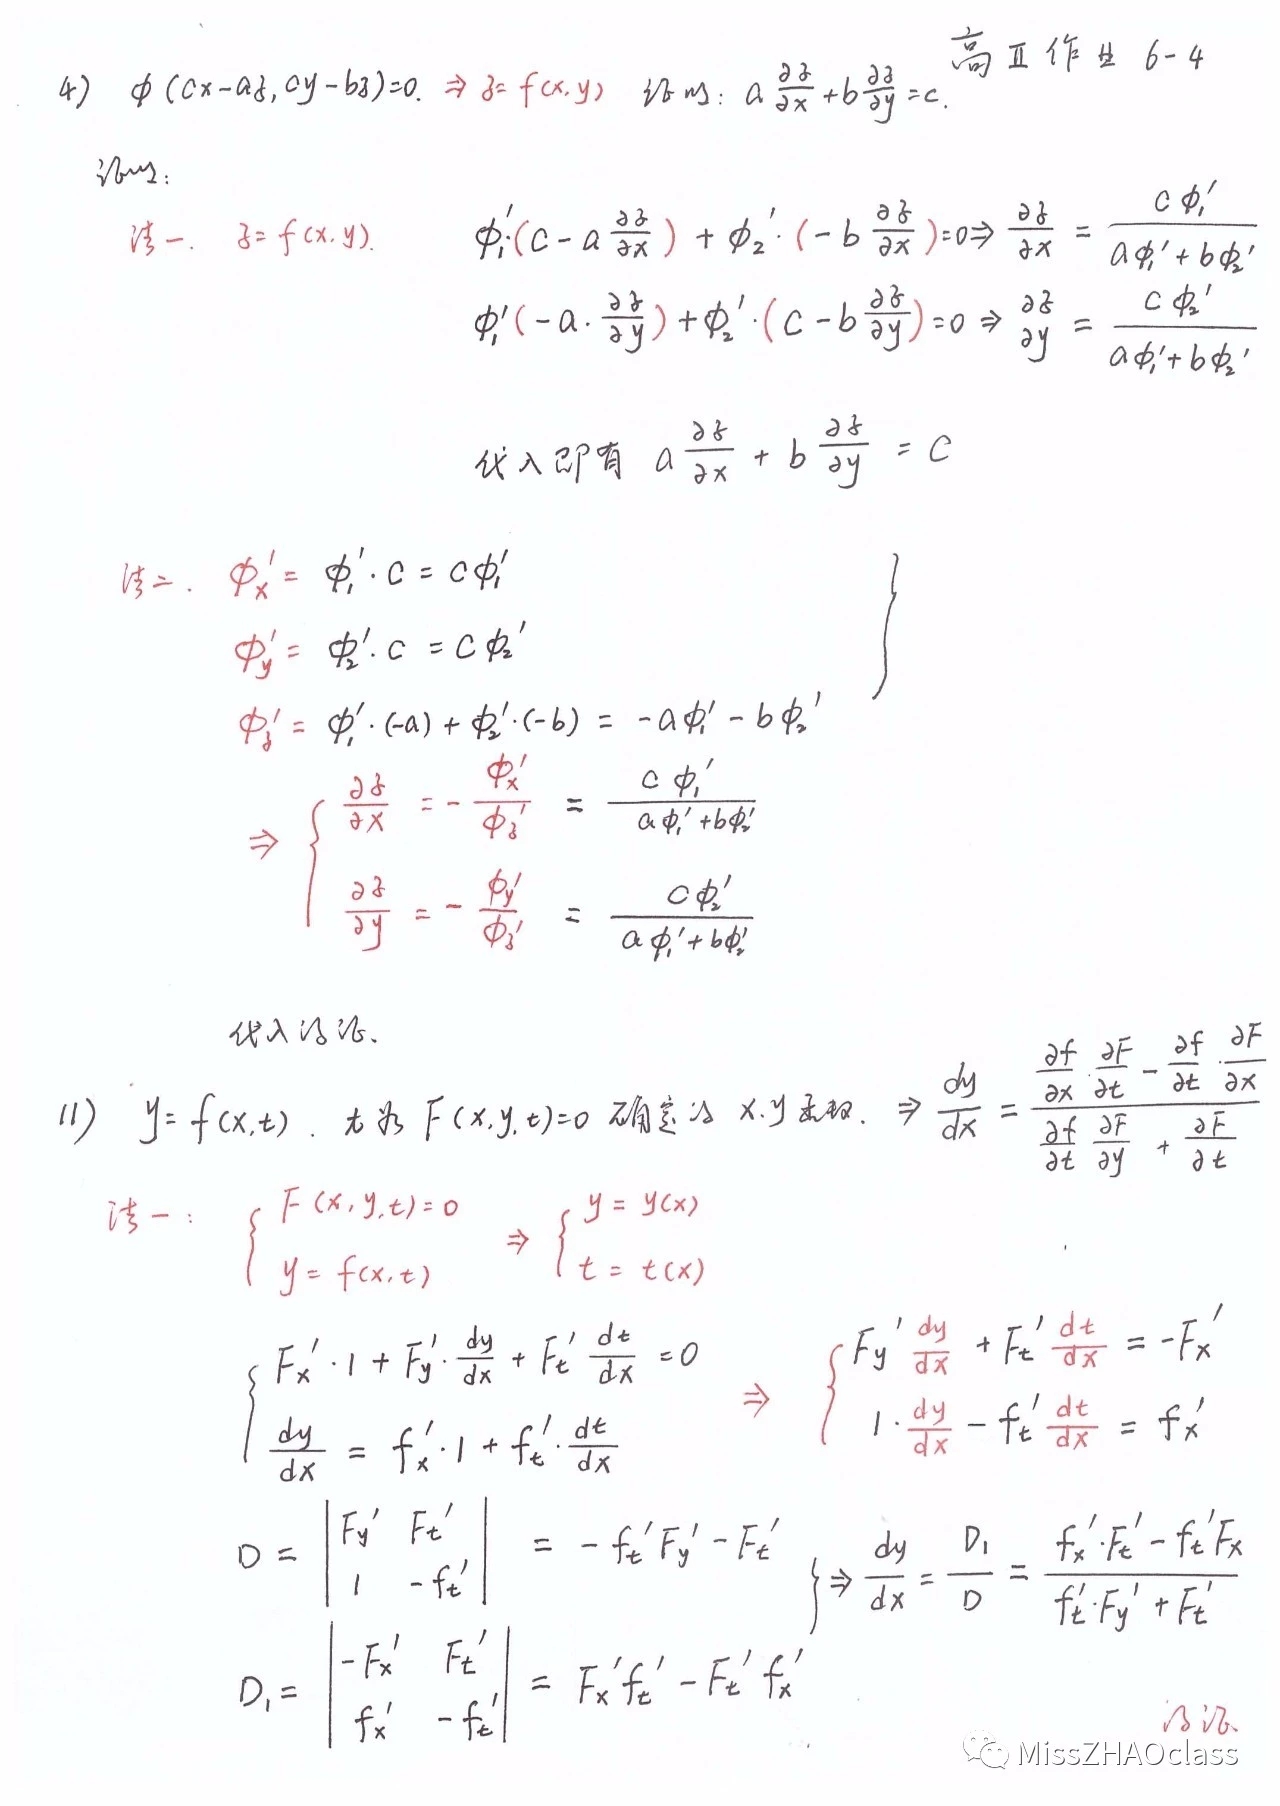 高Ⅱ作业 6-4
4) ϕ(cx-az, cy-bz)=0. ⇒ z=f(x,y) 证明: a ∂z/∂x + b ∂z/∂y = c.
证明:
法一. z=f(x,y). ϕ₁'·(c - a ∂z/∂x) + ϕ₂'·(-b ∂z/∂x)=0 ⇒ ∂z/∂x = cϕ₁'/(aϕ₁'+bϕ₂')
ϕ₁'(-a·∂z/∂y) + ϕ₂'·(c - b ∂z/∂y)=0 ⇒ ∂z/∂y = cϕ₂'/(aϕ₁'+bϕ₂')
代入即有 a ∂z/∂x + b ∂z/∂y = c
法二. ϕx' = ϕ₁'·c = cϕ₁'
ϕy' = ϕ₂'·c = cϕ₂'
ϕz' = ϕ₁'·(-a) + ϕ₂'·(-b) = -aϕ₁' - bϕ₂' }
⇒ { ∂z/∂x = - ϕx'/ϕz' = cϕ₁'/(aϕ₁'+bϕ₂')
∂z/∂y = - ϕy'/ϕz' = cϕ₂'/(aϕ₁'+bϕ₂')
代入得证.
11) y=f(x,t). t为 F(x,y,t)=0 确定的 x.y函数. ⇒ dy/dx = (∂f/∂x·∂F/∂t - ∂f/∂t·∂F/∂x)/(∂f/∂t ∂F/∂y + ∂F/∂t)
法一: { F(x,y,t)=0 ⇒ { y=y(x)
y=f(x,t) t=t(x)
{ Fx'·1 + Fy'·dy/dx + Ft' dt/dx = 0 ⇒ { Fy' dy/dx + Ft' dt/dx = -Fx'
dy/dx = fx'·1 + ft'·dt/dx 1·dy/dx - ft' dt/dx = fx'
D = | Fy' Ft' ; 1 -ft' | = -ft'Fy' - Ft' } ⇒ dy/dx = D₁/D = (fx'·Ft' - ft'Fx)/(ft'·Fy' + Ft')
D₁ = | -Fx' Ft' ; fx' -ft' | = Fx'ft' - Ft'fx'
得证.
MissZHAOclass